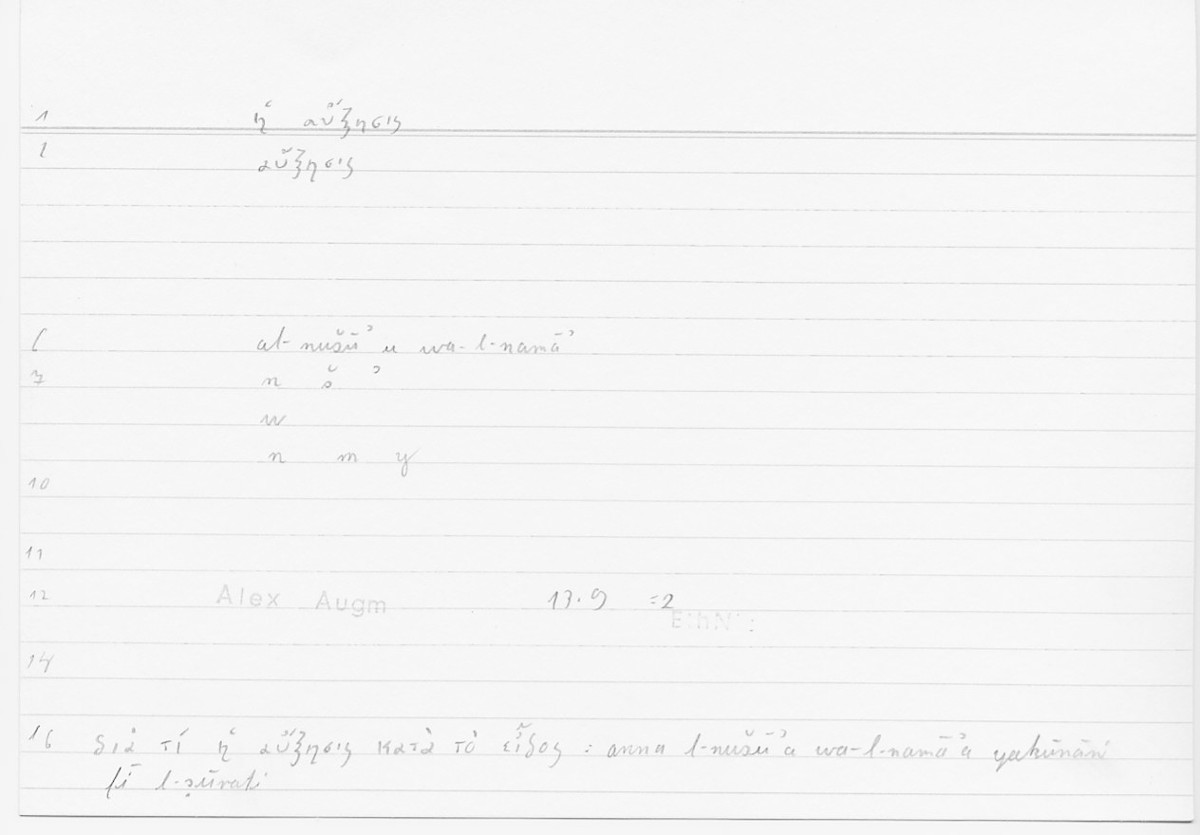 1 ἡ αὔξησις
2 αὔξησις
6 al-nušūʾu wa-l-namāʾ
7 n š ʾ
w
n m y
10
11
12 Alex Augm 13.9 =2
14
16 διὰ τί ἡ αὔξησις κατὰ τὸ εἶδος : anna l-nušūʾa wa-l-namāʾa yakūnāni
fī l-ṣūrati